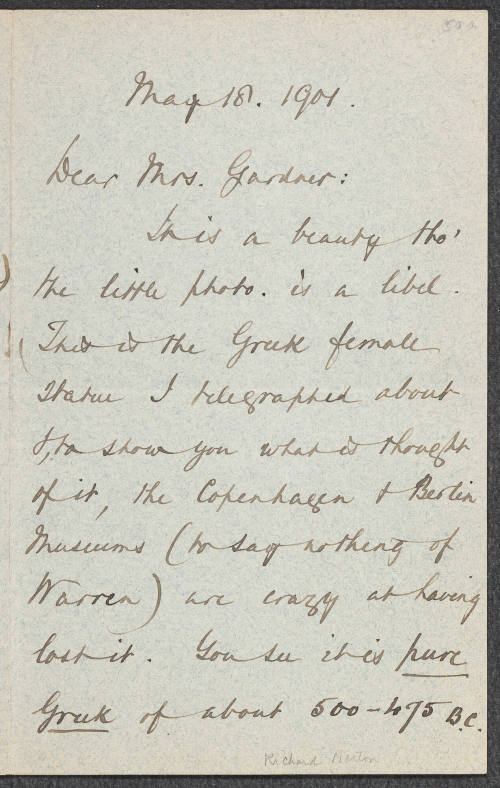 May 18. 1901.
Dear Mrs. Gardner:
This is a beauty tho'
the little photo. is a libel.
This is the Greek female
statue I telegraphed about
&, to show you what is thought
of it, the Copenhagen & Berlin
Museums (to say nothing of
Warren) are crazy at having
lost it. You see it is pure
Greek of about 500-475 B.C.
Richard Norton